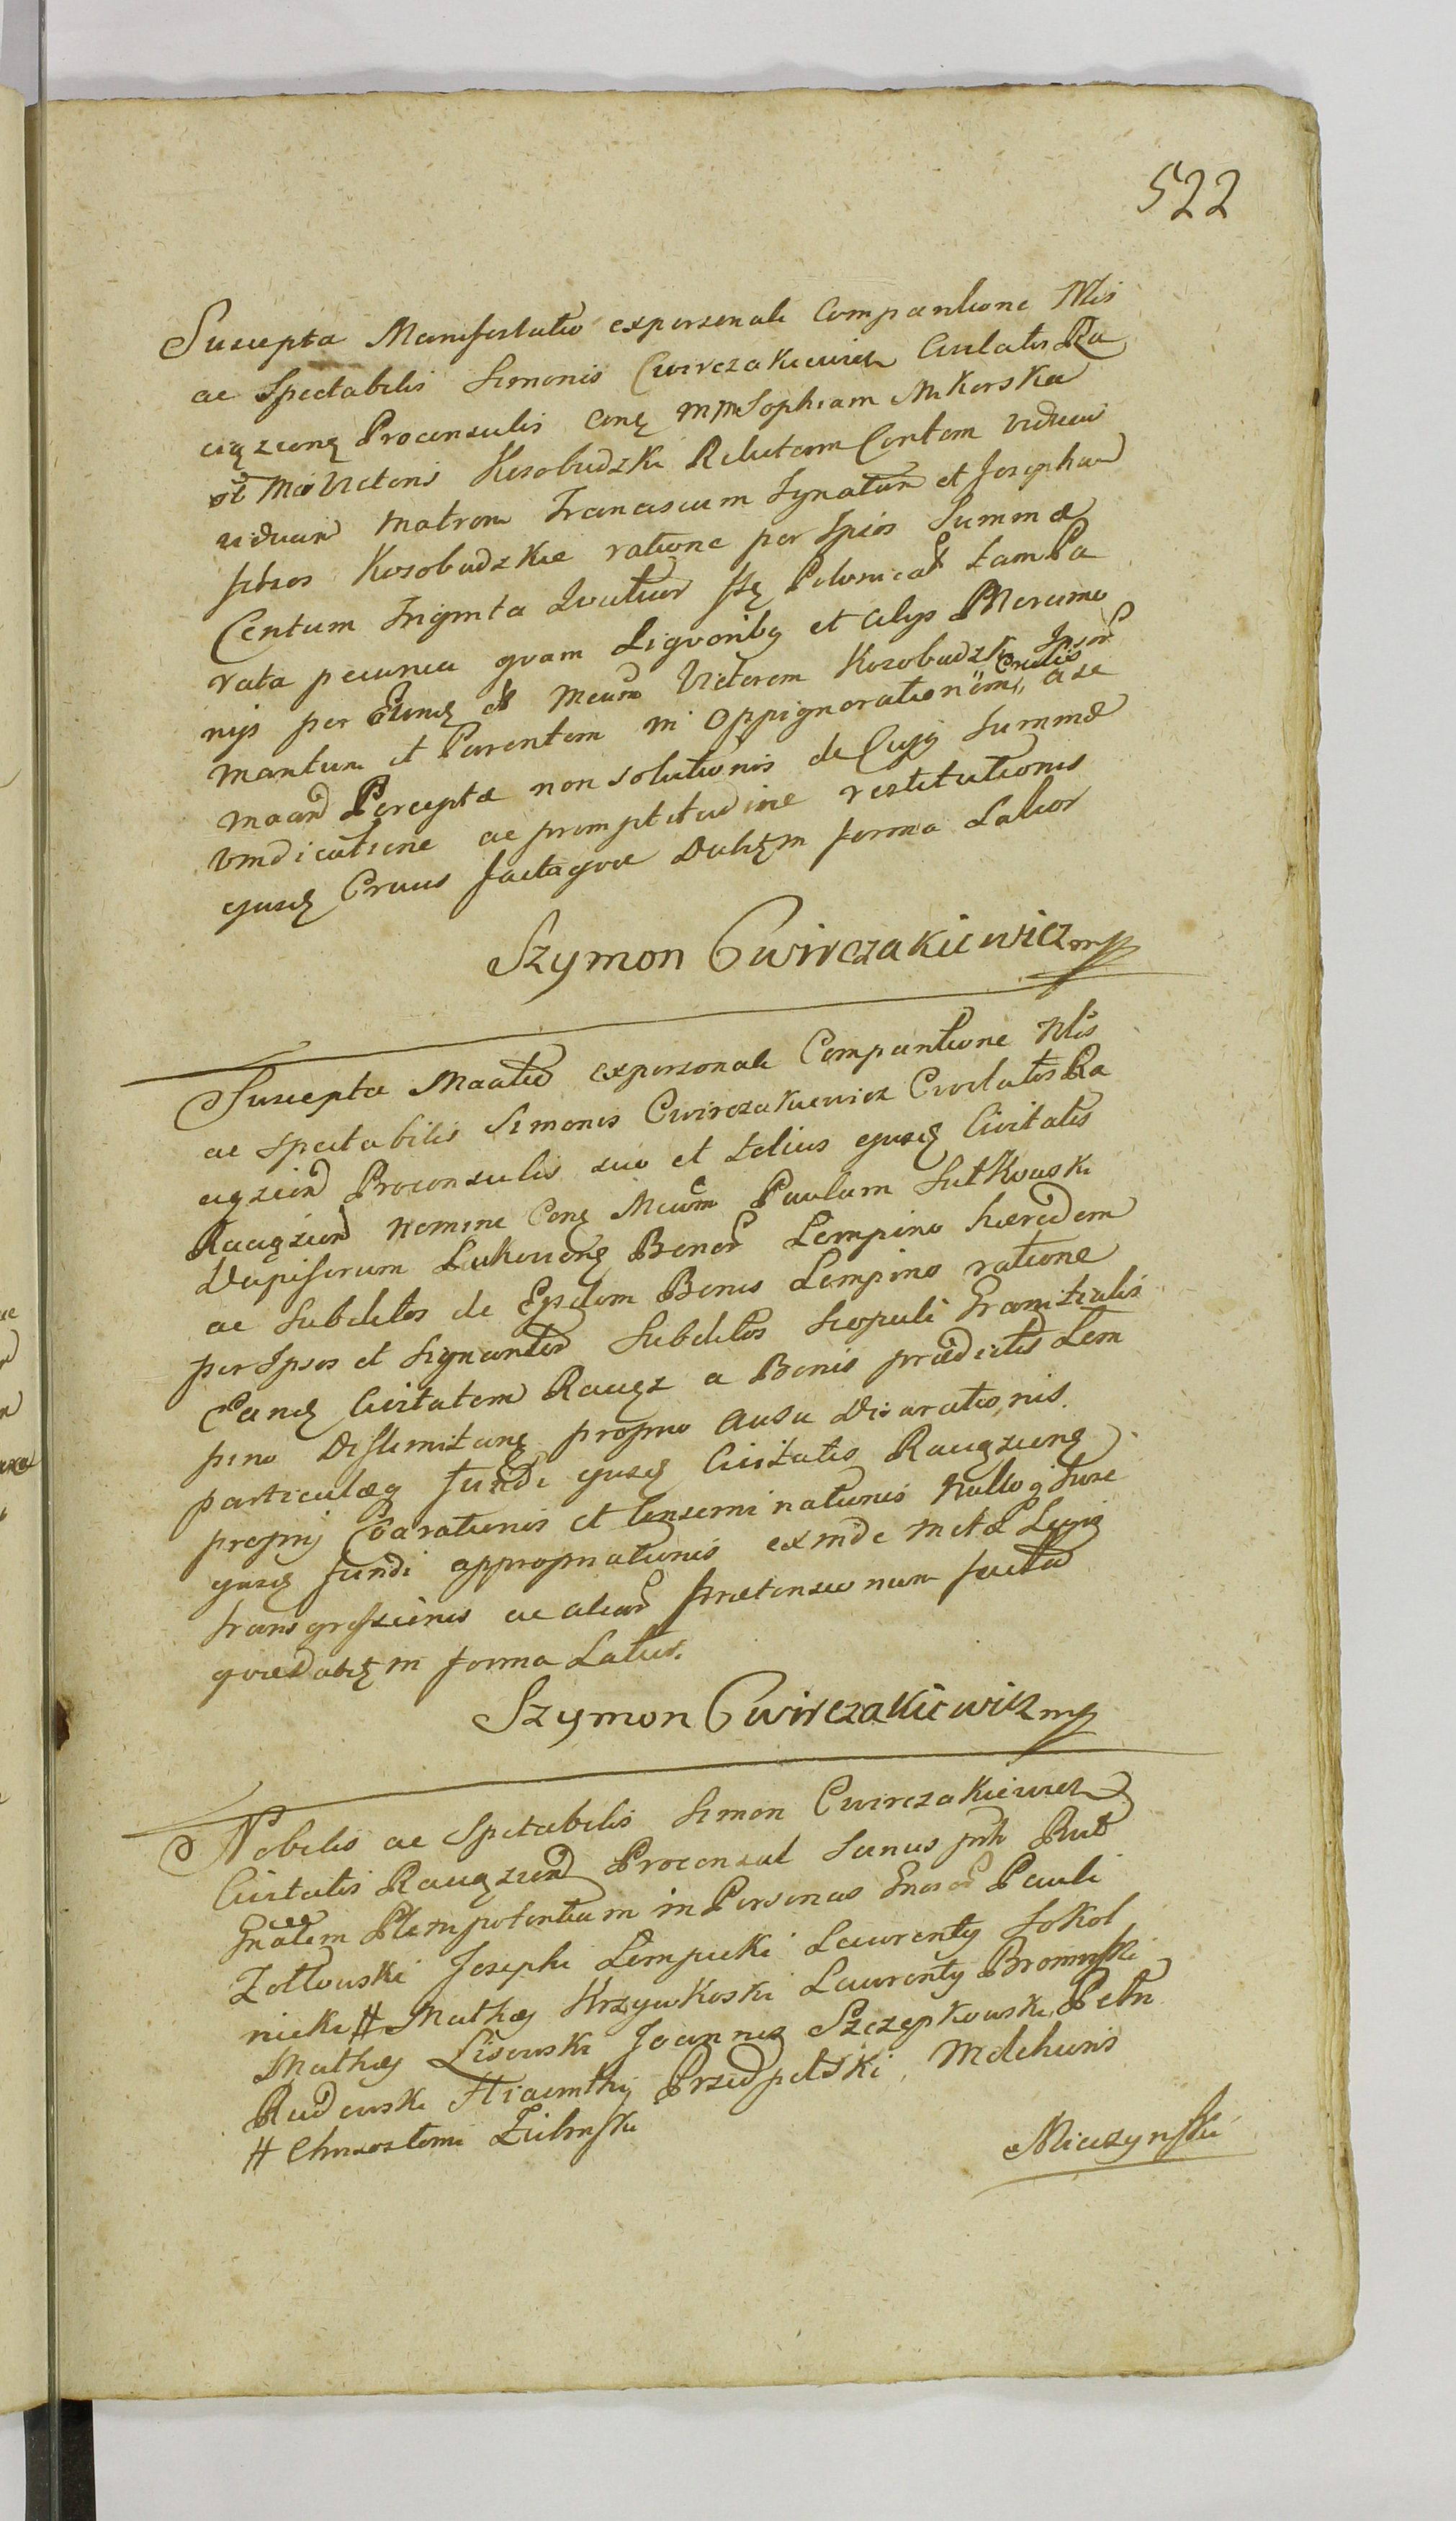 522
Suscepta Manifestatio ex personali Comparitione Nlis
ac Spectabilis Simonis Cwirczakiewicz Civitatis Ra
ciązieng Proconsulis Cong Sophiam Mikorska
Victoris Kosobudzki Relictam Viduam
viduam Matrem Franciscum Ignatium et Josephum
filios Kosobudzkie ratione per Ipsos Summæ
Centum Triginta Polonical tam Pa
rata pecunia quam Liquoribq et alijs
nijs per Victorem Kosobudzki Ipsor
Maritum et Parentem in Oppignorationem a se
Perceptæ non solutionis de Cujq Summæ
vindicatione ac promptitudine restitutionis
ejusd factaque in forma Latior
Szymon Cwirczakiewicz mp
Suscepta ex personali Comparitione Nlis
ac Spectabilis Simonis Cwirczakiewicz Civitatis Ra
ciązien Proconsulis suo et totius ejusd Civitatis
Raciązien Nomine Cong Paulum Sutkowski
Dapiferum Bonor Lempino hæredem
ac Subditos de Ejsdem Bonis Lempino ratione
per Ipsos et Signanter Subditos Scopuli Granitialis
Eand Civitatem Raciąz a Bonis prædictis Lem
pino Dislimitang proprio ausu Disarationis
particulæq fundi ejusd Civitatis Raciązieng
proprij Coarationis et Conseminationis Nulloq Jure
ejusd fundi appropriationis exinde metæ
transgressionis ac aliar prætensionum facta
in forma Latior.
Szymon Cwirczakiewicz mp
Nobilis ac Spctabilis Simon Cwirczakiewicz
Civitatis Raciązien Proconsul Sanus
Plenipotentiam in Personas Gnosor Pauli
Zółtowski Josephi Lempicki Laurentij Sokol
nicki # Mathæj Krzywkoski Laurentij Bromirski
Mathæj Lisowski Joannis Szczepkowski Petri
Rudowski Hiacinthij Przedpełski Melchioris
# Chrisostomi Zielinski
Miczynski